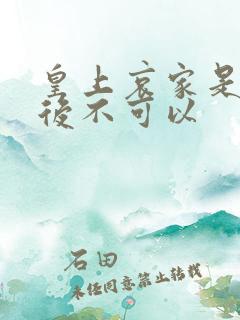 皇上哀家是
後不可以
石田
未经同意禁止转载